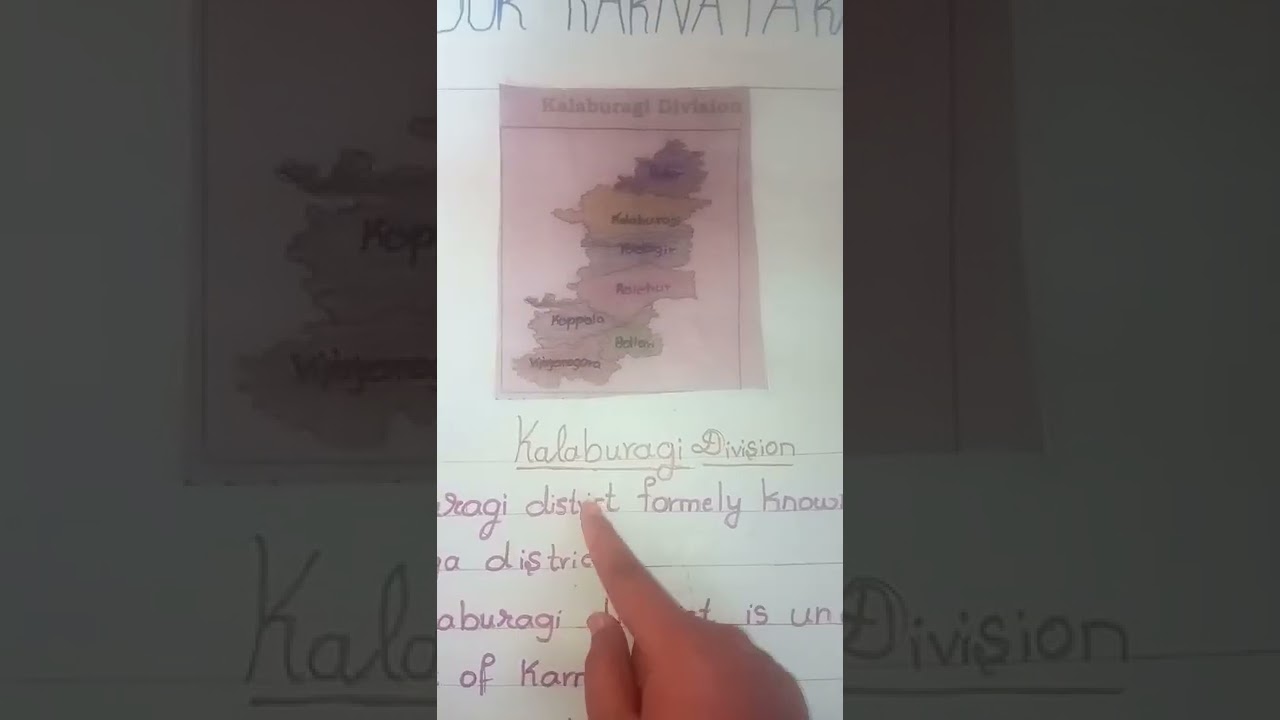 OUR KARNATAKA
Kalaburagi Division
Bidar
Kalaburagi
Yadagir
Raichur
Koppala
Ballari
Vijayanagara
Kalaburagi Division
uragi district formely know
a district
aburagi is un
of Kar